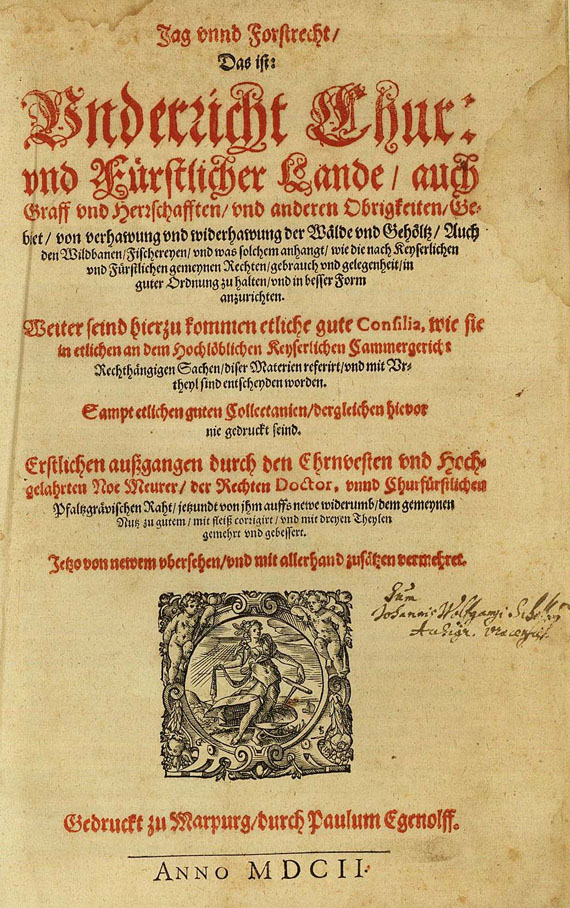 Jag vnnd Forstrecht/
Das ist:
Vnderricht Chur:
vnd Fürstlicher Lande / auch
Graff vnd Herrschafften/vnd anderen Obrigkeiten/Ge-
biet / von verhawung vnd widerhawung der Wälde vnd Gehöltz / Auch
den Wildbanen/Fischereyen/vnd was solchem anhangt/wie die nach Keyserlichen
vnd Fürstlichen gemeynen Rechten/gebrauch vnd gelegenheit/in
guter Ordnung zu halten/vnd in besser Form
anzurichten.
Weiter seind hierzu kommen etliche gute Consilia, wie sie
in etlichen an dem Hochlöblichen Keyserlichen Cammergericht
Rechthängigen Sachen/diser Materien referirt/vnd mit Vr-
theyl sind entscheyden worden.
Sampt etlichen guten Collectanien/dergleichen hievor
nie gedruckt seind.
Erstlichen außgangen durch den Ehrnvesten vnd Hoch-
gelahrten Noe Meurer/ der Rechten Doctor, vnnd Churfürstlichen
Pfaltzgrävischen Raht/jetzundt von jhm auffs newe widerumb/dem gemeynen
Nutz zu gutem / mit fleiß corrigirt / vnd mit dreyen Theylen
gemehrt vnd gebessert.
Jetzo von newem vbersehen/vnd mit allerhand zusätzen vermehret.
Sum
Johannis Wolfgangi
Gedruckt zu Marpurg/durch Paulum Egenolff.
ANNO MDCII.